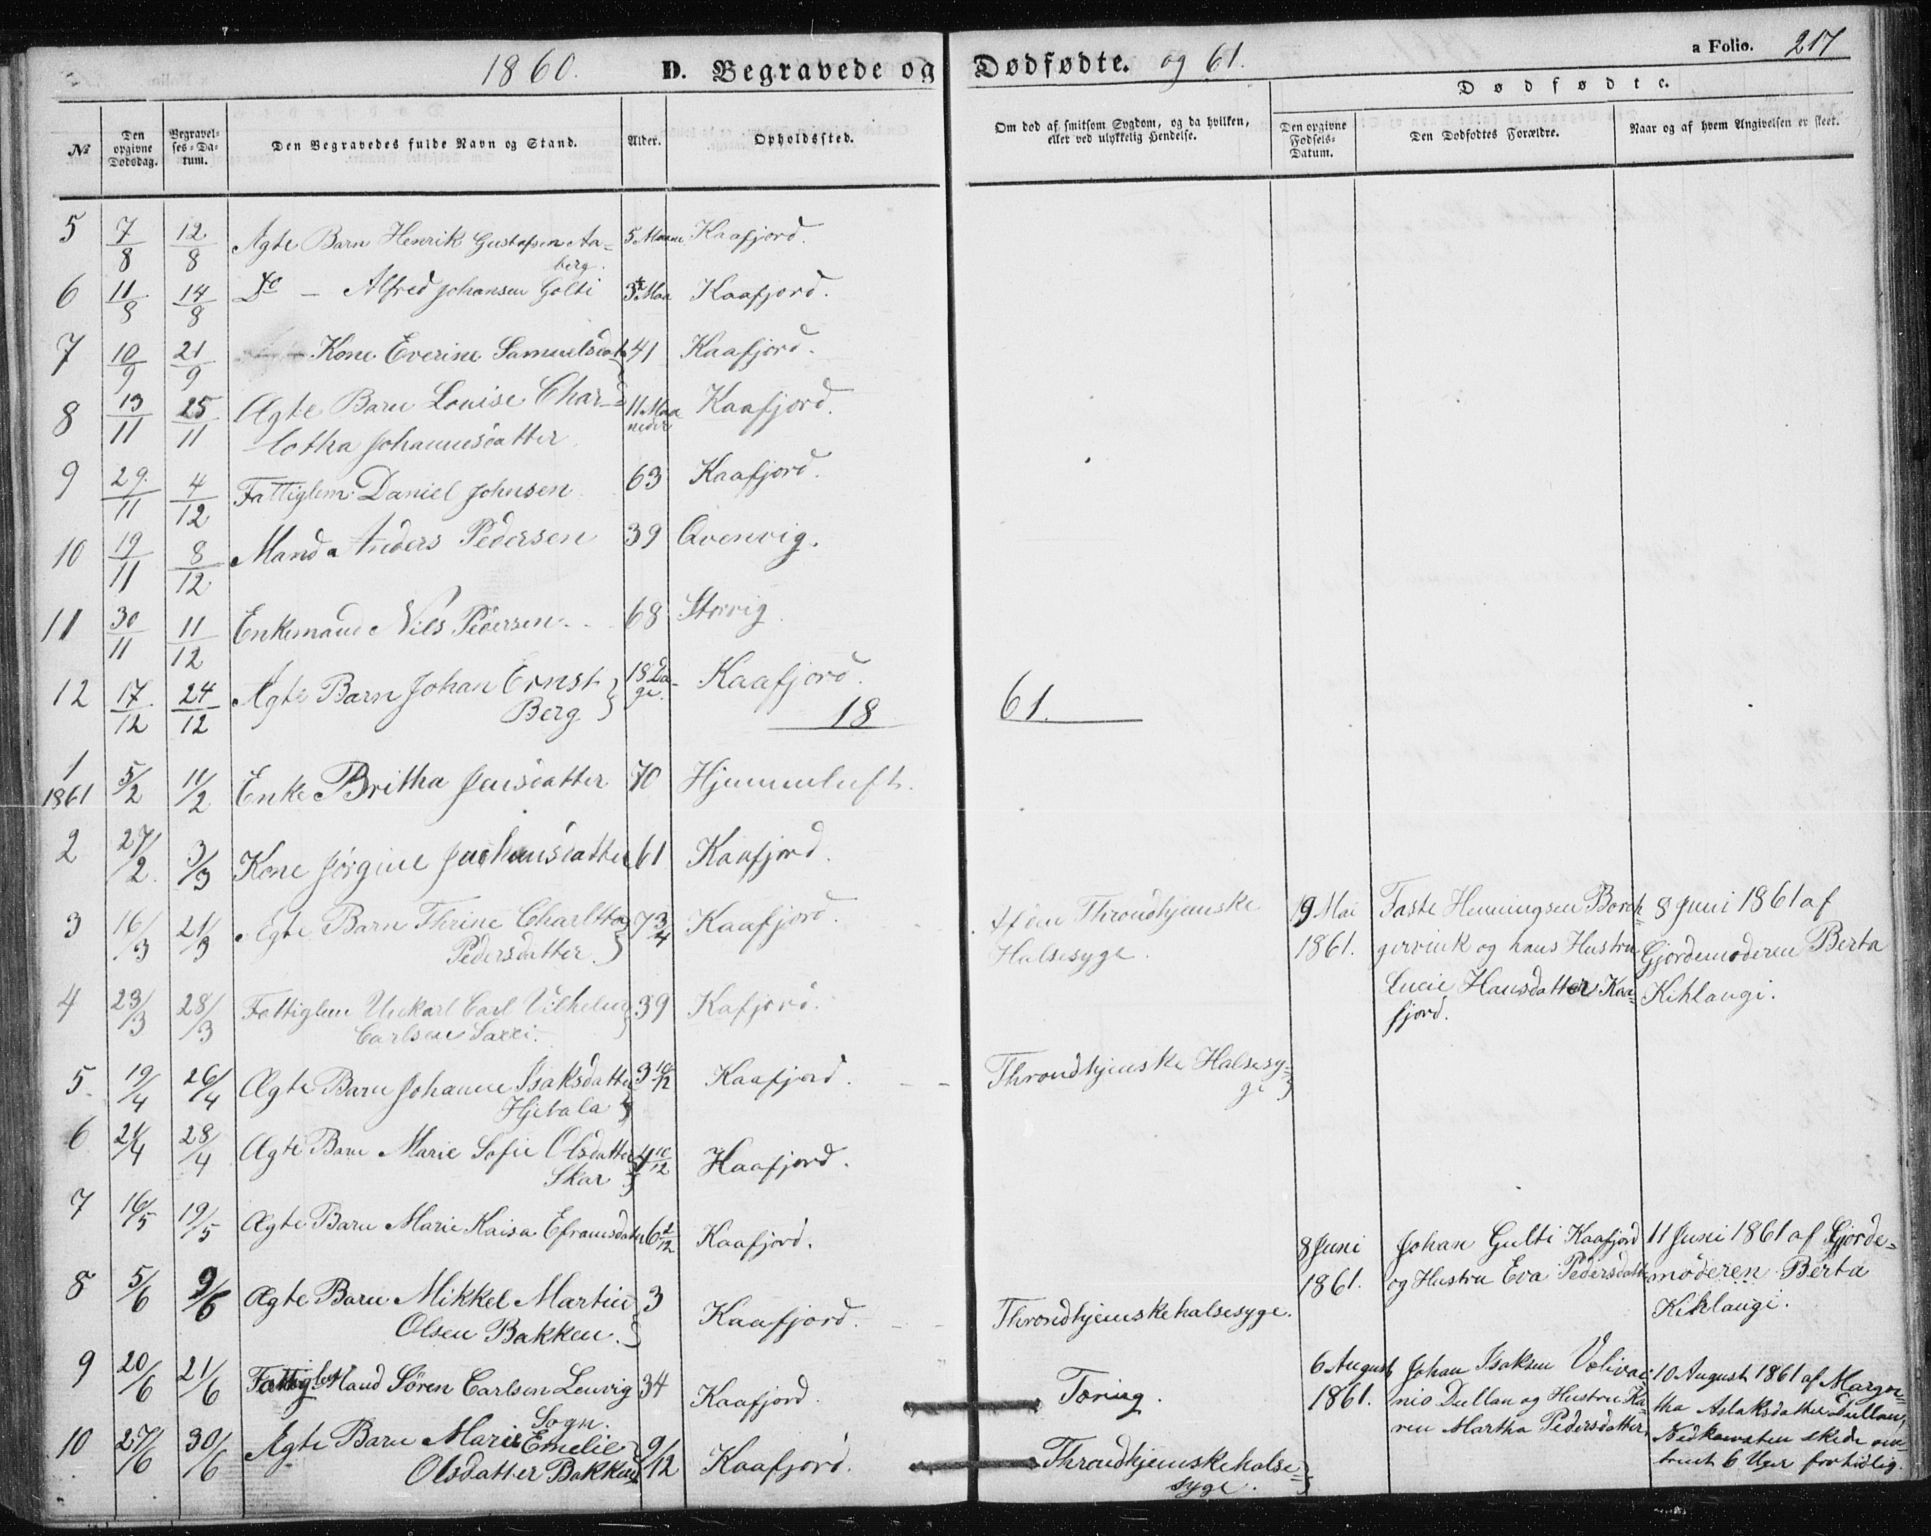 1860. D. Begravede og Dødfødte. og 61. a Folio. 217
Dødfødte.
№ Den opgivne Dødsdag. Begravelses-Datum. Den Begravedes fulde Navn og Stand. Alder. Opholdssted. Om død af smitsom Sygdom, og da hvilken, eller ved ulykkelig Hendelse. Den opgivne Fødsels-Datum. Den Dødfødtes Forældre. Naar og af hvem Angivelsen er skeet.
5 7/8 12/8 Ægte Barn Henrik Gustafsen Aa- 5 Maane Kaafjord.
berg.
6 11/8 14/8 Do — Alfred Johansen Golti 3 Maa Kaafjord.
7 10/9 21/9 Kone Everine Samuelsdat 41 Kaafjord.
8 13/11 25/11 Ægte Barn Louise Char- 11 Maa Kaafjord.
lotha Johannesdatter neder
9 29/11 4/12 Fattiglem Daniel Johnsen 63 Kaafjord.
10 19/11 8/12 Mand Anders Pedersen 39 Qvenvig.
11 30/11 11/12 Enkemand Nils Pedersen 68 Storvig
12 17/12 24/12 Ægte Barn Johan Ernst 18 Da- Kaafjord.
Berg ge.
18 61.
1 1861 5/2 11/2 Enke Britha Jensdatter 70 Hjemmeluft.
2 27/2 3/3 Kone Jørgine 61 Kaafjord.
3 16/3 21/3 Ægte Barn Thrine Charltta 7 3/4 Kaafjord. Throndhjemske 19 Mai Faste Henningsen Borch 8 Juni 1861 af
Pedersdatter. Halsesyge. 1861. gervink og hans Hustru Gjordemoderen Berta
Lucie Hansdatter Kaa- Kihlangi.
4 23/3 28/3 Fattiglem Carl Vilhelm 39 Kafjord. fjord.
Carlsen
5. 19/4 26/4 Ægte Barn Johanne Isaksdatter 3 10/12 Kaafjord. — Throndhjemske Halsesy-
Hjetala ge
6 21/4 28/4 Ægte Barn Marie Sofie Olsdatter 4 10/12 Kaafjord.
Skar
7 16/5 19/5 Ægte Barn Marie Kaisa Efraimsdatt 6 2/12 Kaafjord. 8 Juni Johan Gulti Kaafjord 11 Juni 1861 af Gjorde-
8 5/6 9/6 Ægte Barn Mikkel Martin 3 Kaafjord. — Throndhjemske halsesyge. 1861. og Hustru Eva Pedersdatter moderen Berta
Olsen Bakken. Kihlangi.
9 20/6 21/6 Fattiglem Mand Sören Carlsen Leuvig 34 Kaafjord. Tæring. 6 August Johan Isaksen 10 August 1861 af Margre-
Sogn. 1861. Dullan og Hustru Ka- tha Aslaksdatter Dullan,
10 27/6 30/6 Ægte Barn Marie Emelie 9/12 Kaafjord. Throndhjemske halse- ren Martha Pedersdatter. Nedkomsten skede om-
Olsdatter Bakken syge. trent 6 Uger for tidlig.